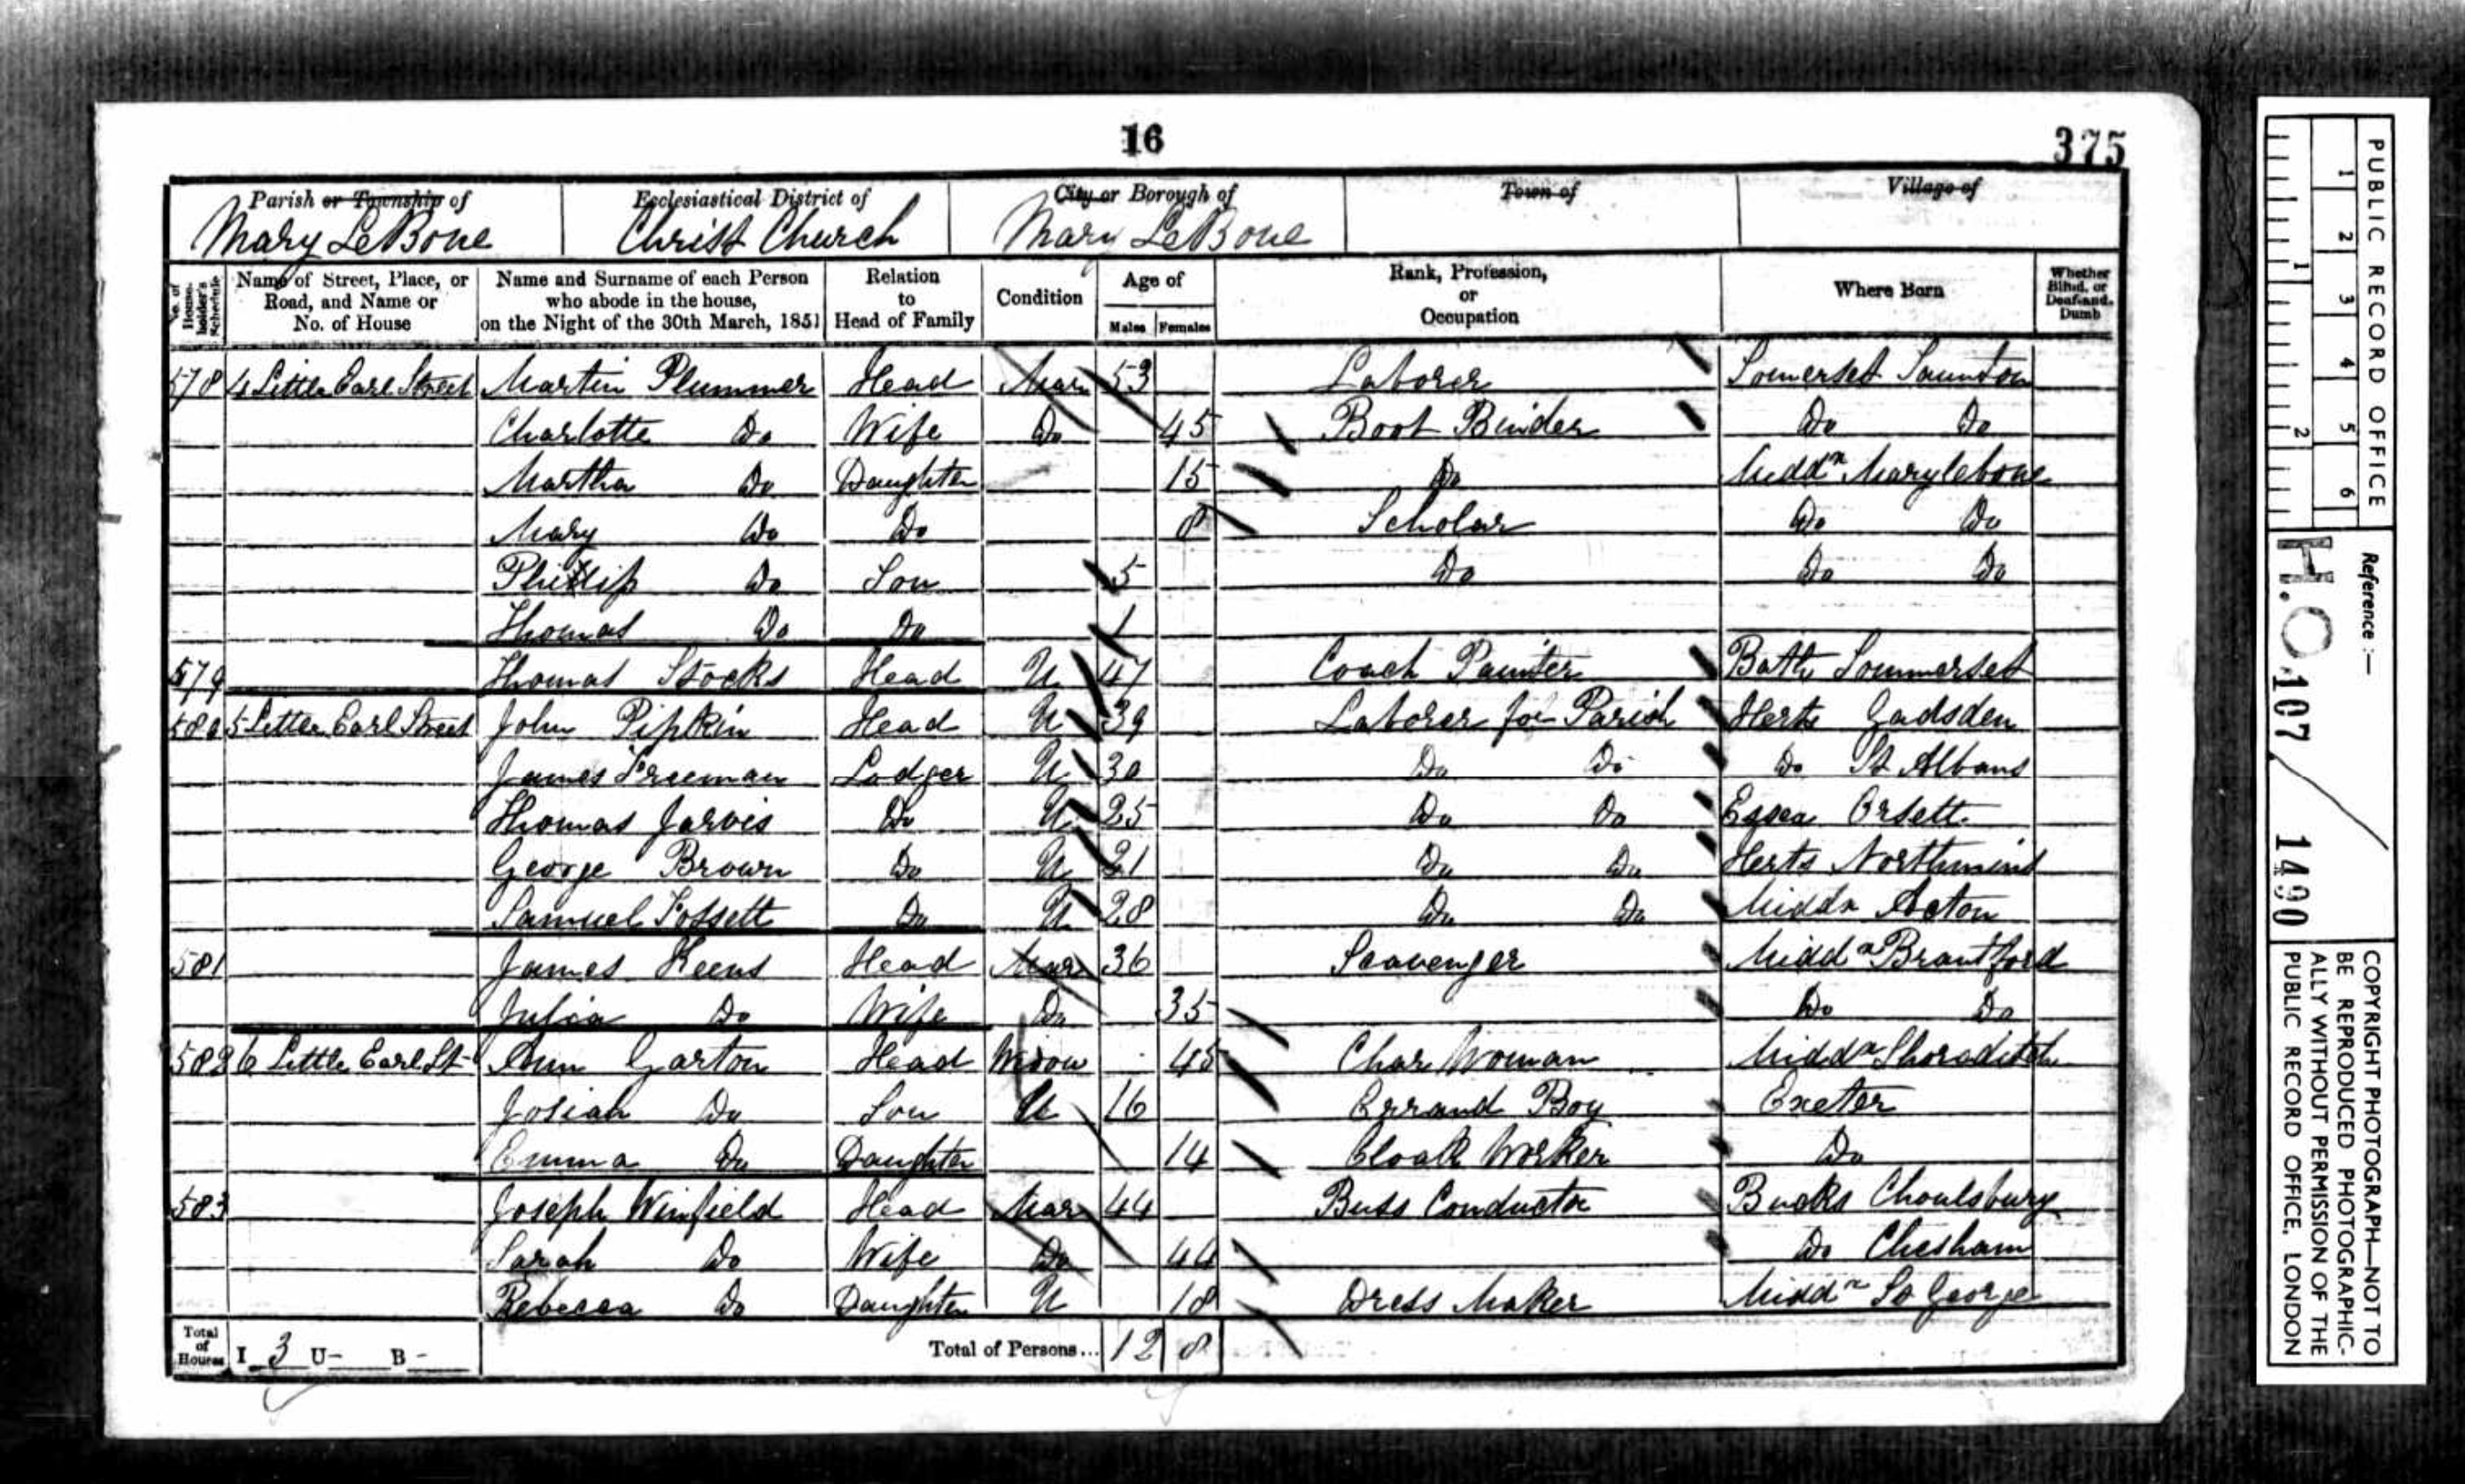 16
375
Parish or Township of
Mary LeBone
Ecclesiastical District of
Christ Church
City or Borough of
Mary LeBone
Town of
Village of
No. of House-holder's Schedule
Name of Street, Place, or Road, and Name or No. of House
Name and Surname of each Person who abode in the house, on the Night of the 30th March, 1851
Relation to Head of Family
Condition
Age of
Males Females
Rank, Profession, or Occupation
Where Born
Whether Blind, or Deaf-and-Dumb
578 4 Little Earl Street Martin Plummer Head Mar 53 Laborer Somerset Taunton
Charlotte Do Wife Do 45 Boot Binder Do Do
Martha Do Daughter 15 Do Middx Marylebone
Mary Do Do 8 Scholar Do Do
Phillip Do Son 5 Do Do Do
Thomas Do Do 1
579 Thomas Stocks Head U 47 Coach Painter Bath Sommerset
580 5 Little Earl Street John Pipkin Head U 39 Laborer for Parish Herts Gadsden
James Freeman Lodger U 30 Do Do Do St Albans
Thomas Jarvis Do U 25 Do Do Essex Orsett
George Brown Do U 21 Do Do Herts Northmind
Samuel Fossett Do U 28 Do Do Middx Acton
581 James Keens Head Mar 36 Scavenger Middx Brantford
Julia Do Wife Do 35 Do Do
582 6 Little Earl St Ann Garton Head Widow 45 Char Woman Middx Shoreditch
Josiah Do Son U 16 Errand Boy Exeter
Emma Do Daughter 14 Cloak Worker Do
583 Joseph Winfield Head Mar 44 Buss Conductor Bucks Choulsbury
Sarah Do Wife Do 44 Do Chesham
Rebecca Do Daughter U 18 Dress Maker Middx St George
Total of Houses I 3 U - B -
Total of Persons... 12 8
PUBLIC RECORD OFFICE
1 2 3 4 5 6
1 2
Reference :—
H.O. 107 / 1490
COPYRIGHT PHOTOGRAPH—NOT TO
BE REPRODUCED PHOTOGRAPHIC-
ALLY WITHOUT PERMISSION OF THE
PUBLIC RECORD OFFICE, LONDON